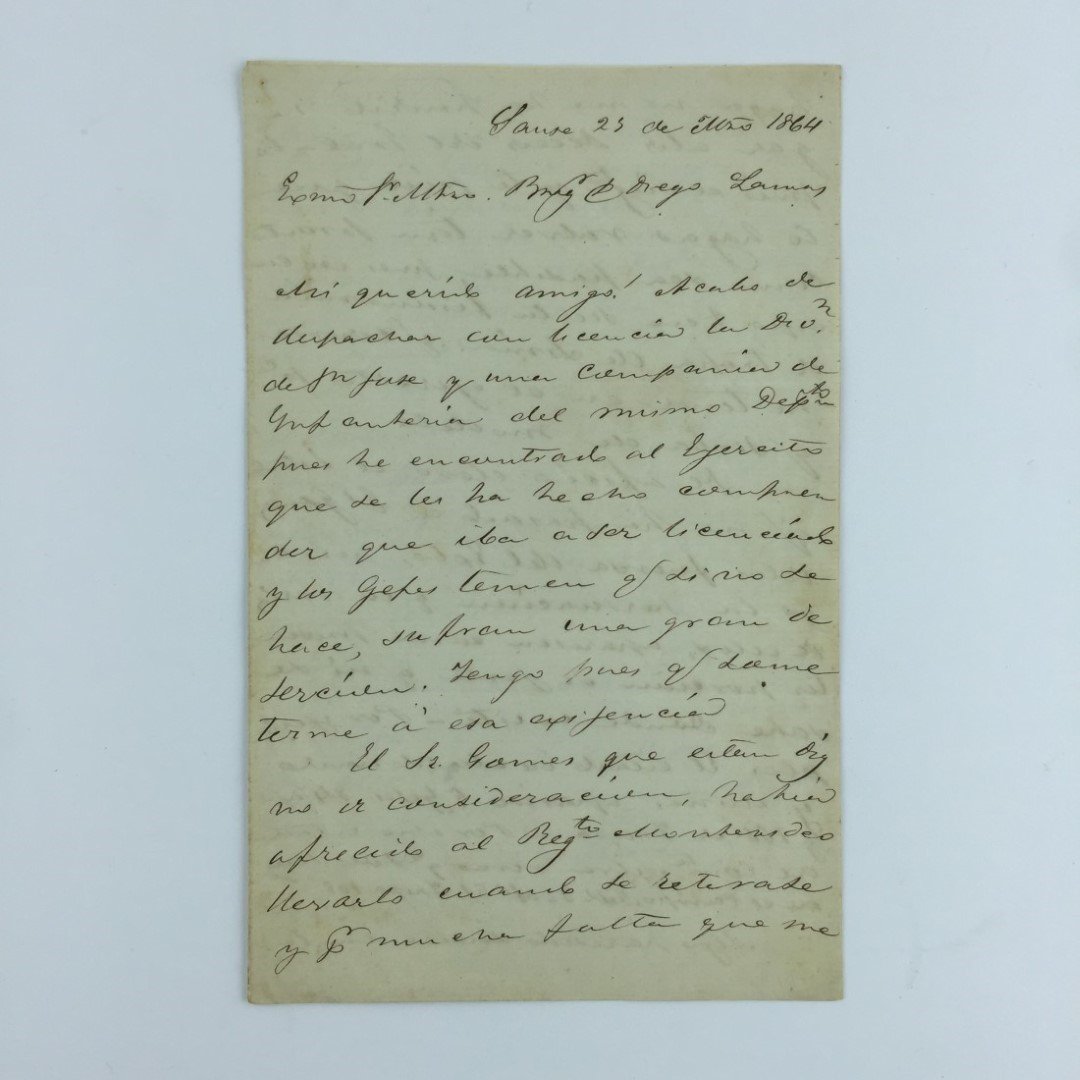 Sause 25 de Mzo 1864
Exmo Sr. Mtro. Brigr D Diego Lamas
Mi querido amigo! Acabo de
despachar con licencia la Divn.
de Sn José y una compania de
Ynfanteria del mismo Depto
pues he encontrado al Ejercito
que se les ha hecho compren
der que iba a ser licenciado
y los Gefes temen q si no se
hace, sufran una gran de
sercion. Tengo pues q some
terme á esa exijencia
El Sr. Gomes que es tan dig
no de consideracion, habia
ofrecido al Regto Montevideo
llevarlo cuando se retirase
y pr mucha falta que me